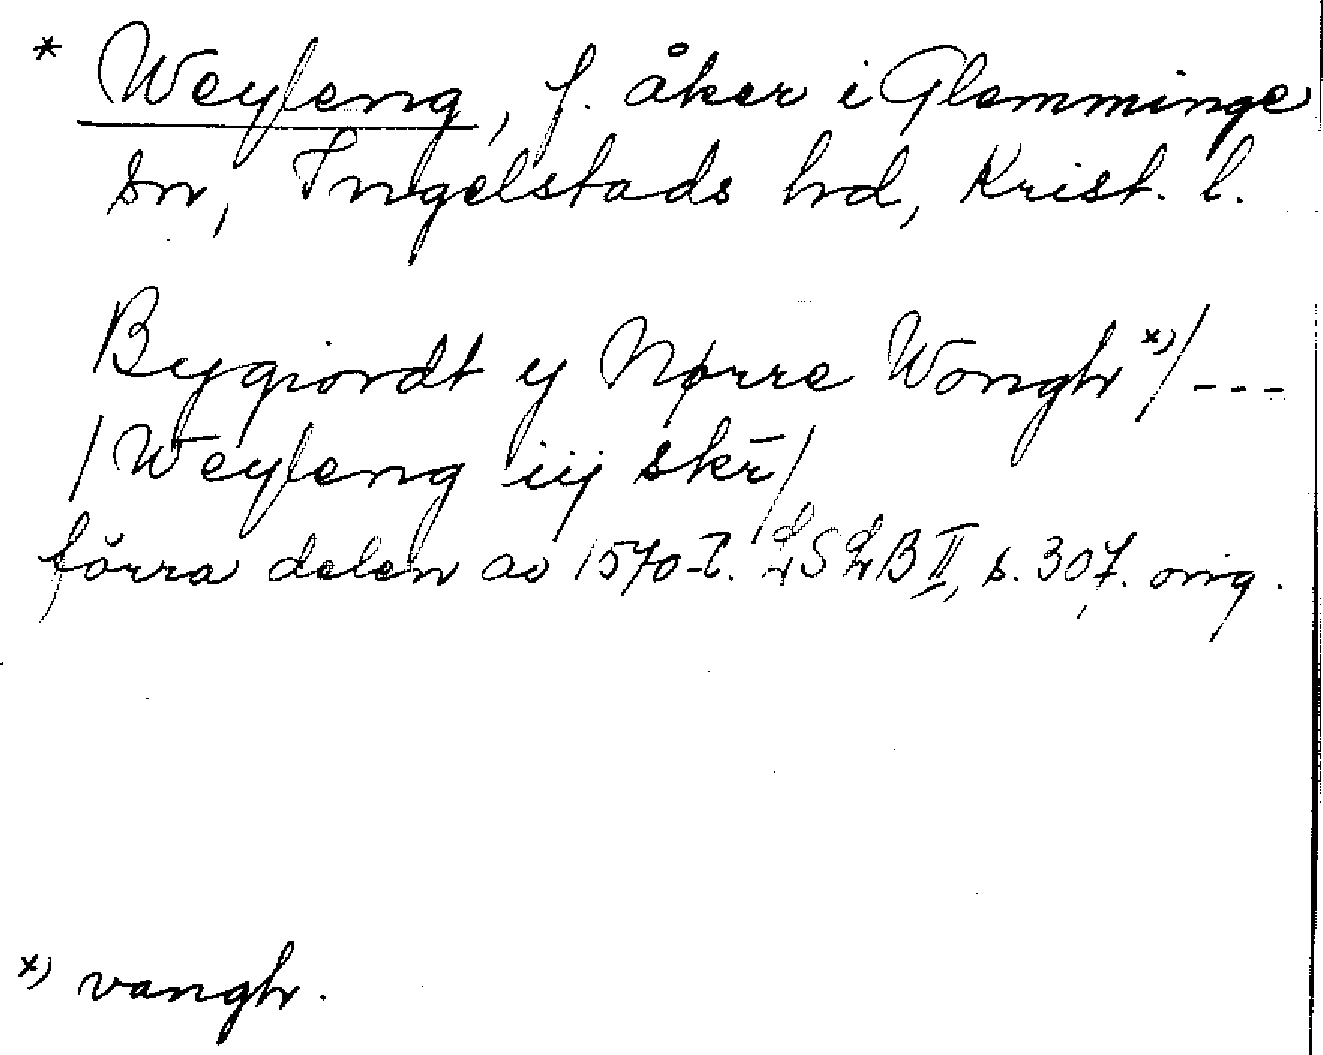 * Weyleng, f. åker i Glemminge
sn, Ingelstads hd, Krist. l.
Bygiordt y Nørre Wongh x)/ ---
/ Weyleng iij skr̄ /
förra delen av 1570-t. LSLB II, s. 307. orig.
x) vangh.